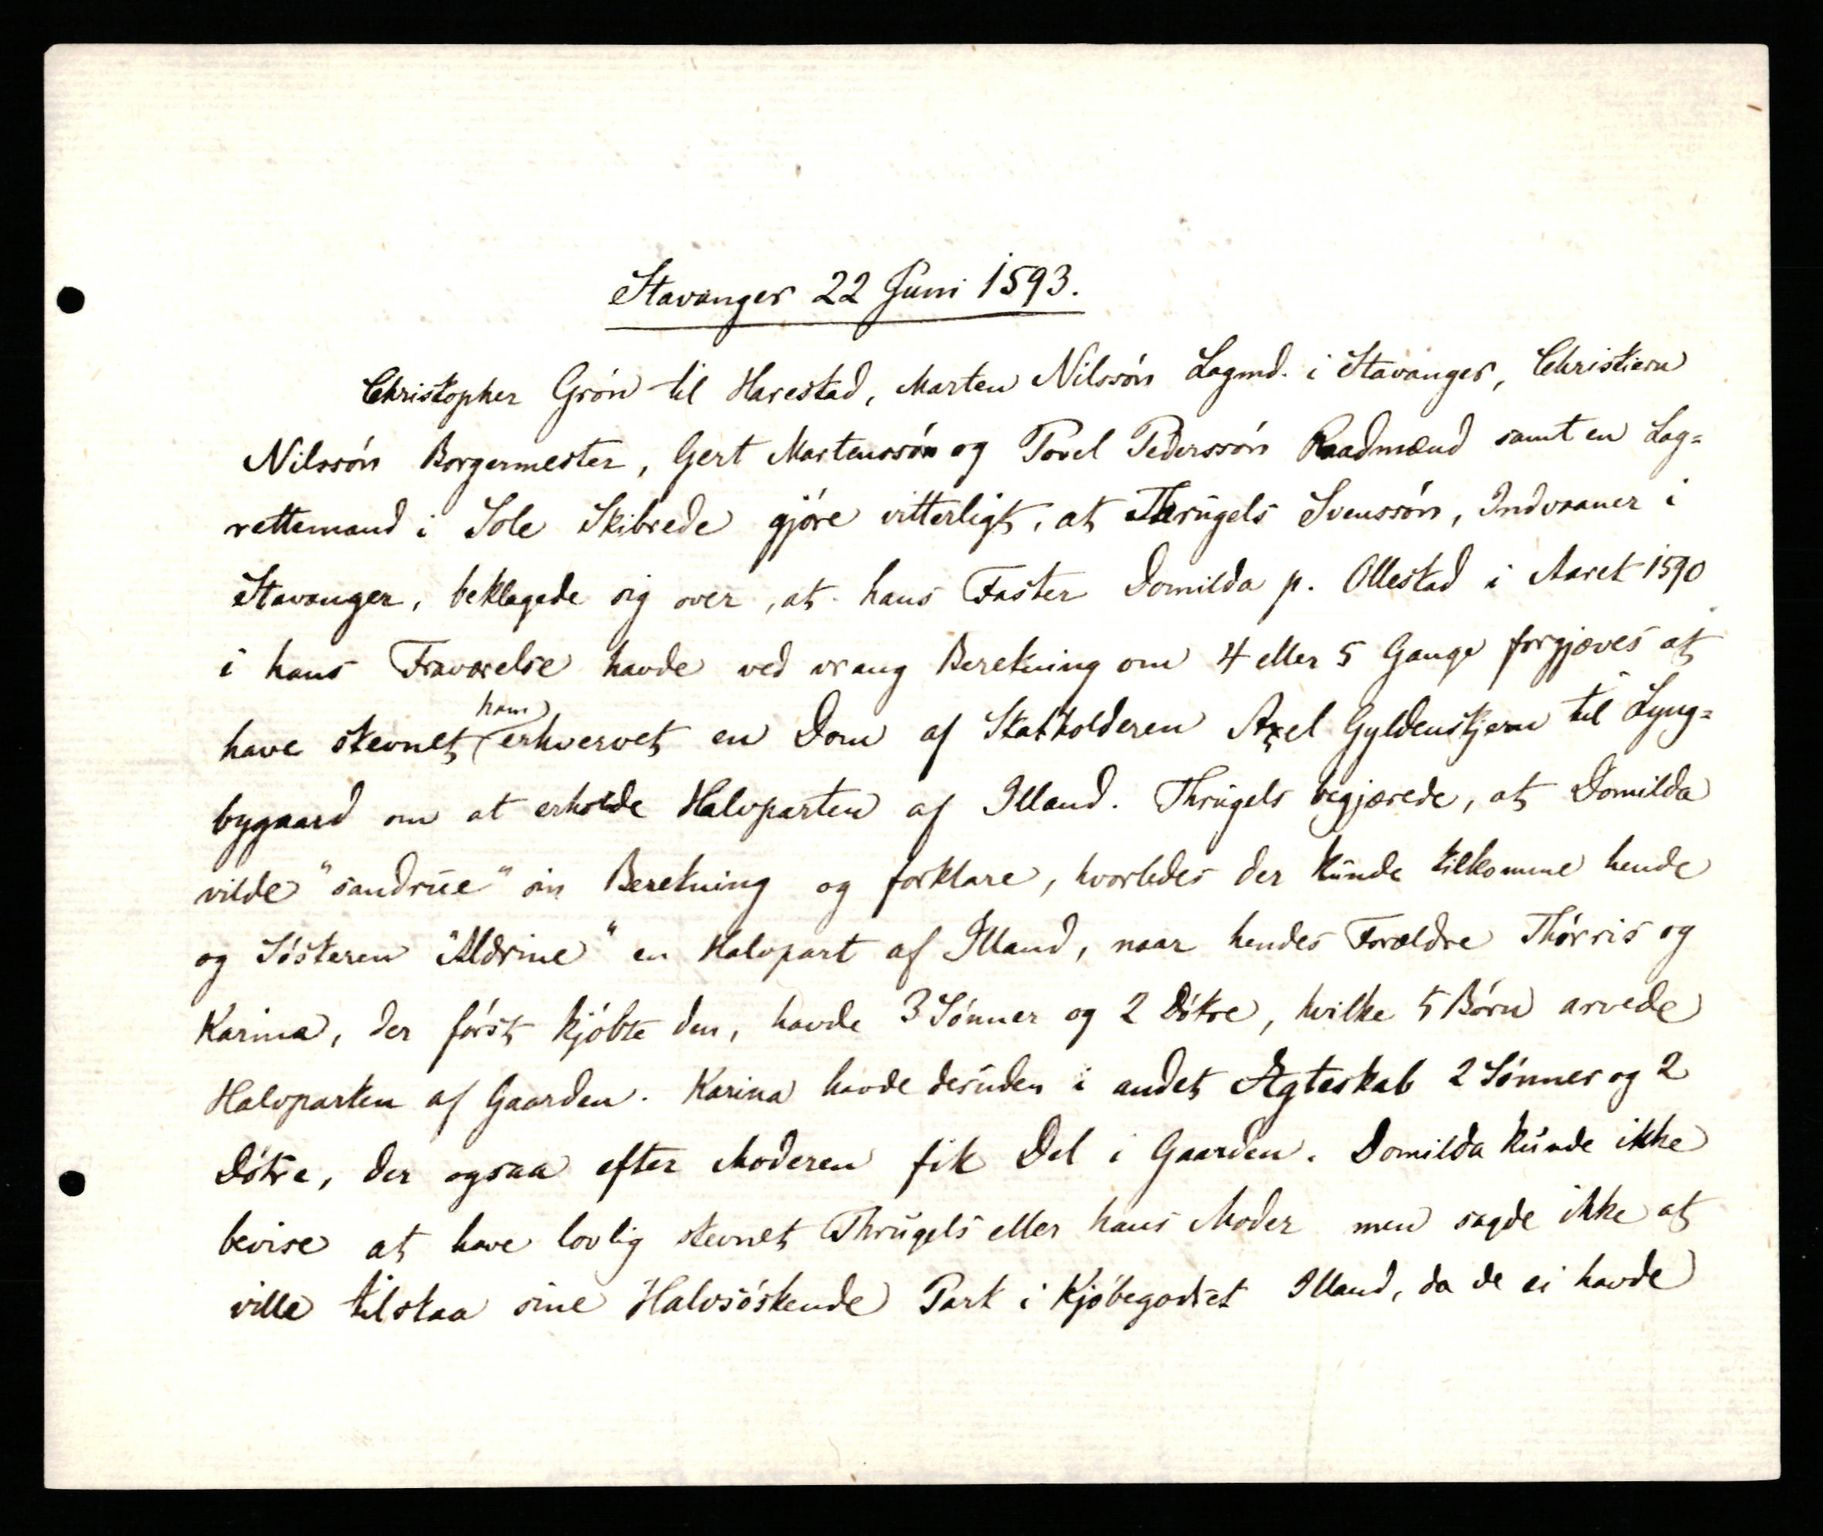 Stavanger 22 Juni 1593.
Christopher Grón til Harestad, Marten Nilssón Lagmd. i Stavanger, Christiern
Nilssón Borgermester, Gert Martenssón og Povel Pederssón Raadmænd samt en Lag=
rettemand i Sole Skibrede gjóre vitterligt, at Thrugels Svenssón, Indvaaner i
Stavanger, beklagede sig over, at hans Faster Domilda p. Ollestad i Aaret 1590
i hans Fraværelse havde ved vrang Beretning om 4 eller 5 Gange forgjæves at
have stevnet ham erhvervet en Dom af Statholderen Axel Gyldenstjern til Lyng=
bygaard om at erholde Halvparten af Illand. Thrugels begjærede, at Domilda
vilde "sandrue" sin Beretning og forklare, hvorledes der kunde tilkomme hende
og Sósteren "Aldrine" en Halvpart af Illand, naar hendes Forældre Thórris og
Karina, der fórst kjóbte den, havde 3 Sónner og 2 Dótre, hvilke 5 Bórn arvede
Halvparten af Gaarden. Karina havde desuden i andet Ægteskab 2 Sónner og 2
Dótre, der ogsaa efter Moderen fik Del i Gaarden. Domilda kunde ikke
bevise at have lovlig stevnet Thrugels eller hans Moder men sagde ikke at
ville tilstaa sine Halvsóskende Part i Kjóbegodset Illand, da de ei havde